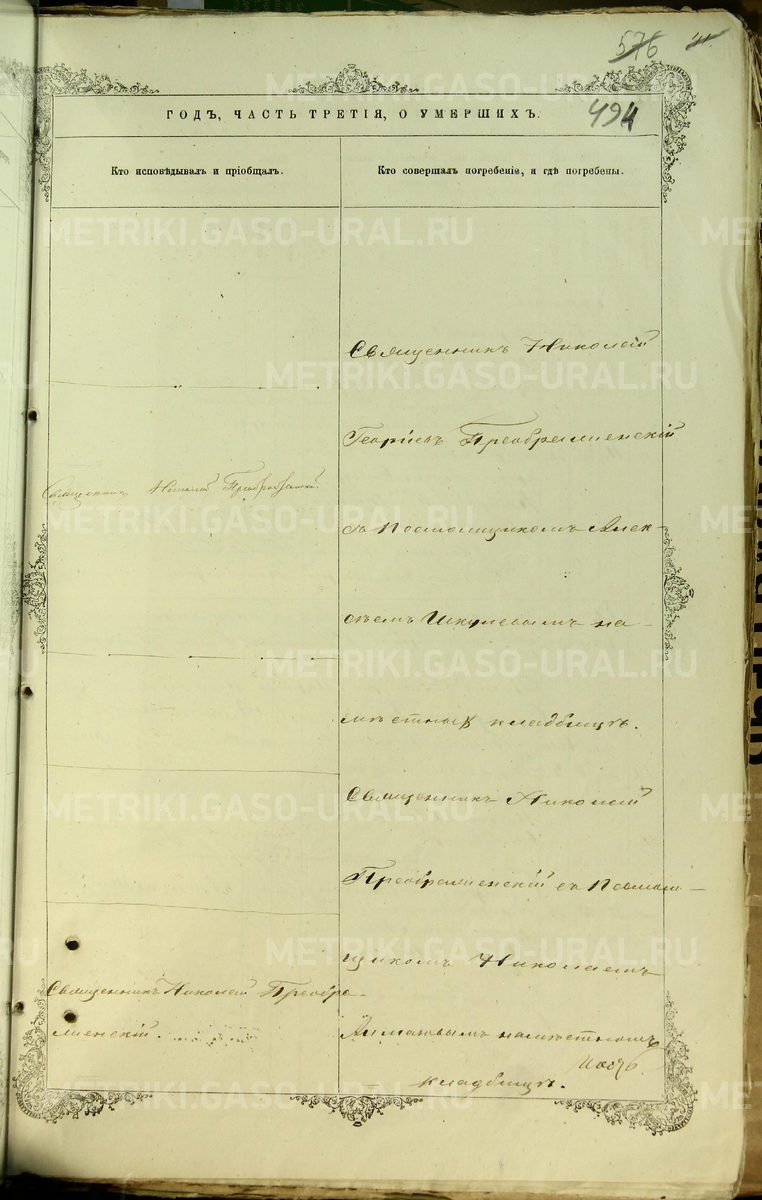 576
494
ГОДЪ, ЧАСТЬ ТРЕТІЯ, О УМЕРШИХЪ.
Кто исповѣдывалъ и пріобщалъ.
Кто совершалъ погребеніе, и гдѣ погребены.
Священникъ Николай Преображенскій
Священникъ Николай Преобра-
женскій.
Священникъ Николай
Георгіевъ Преображенскій
съ Псаломщикомъ Алек-
сѣемъ на
мѣстномъ кладбищѣ.
Священникъ Николай
Преображенскій съ Псалом-
щикомъ Николаемъ
на мѣстномъ
кладбищѣ.
METRIKI.GASO-URAL.RU